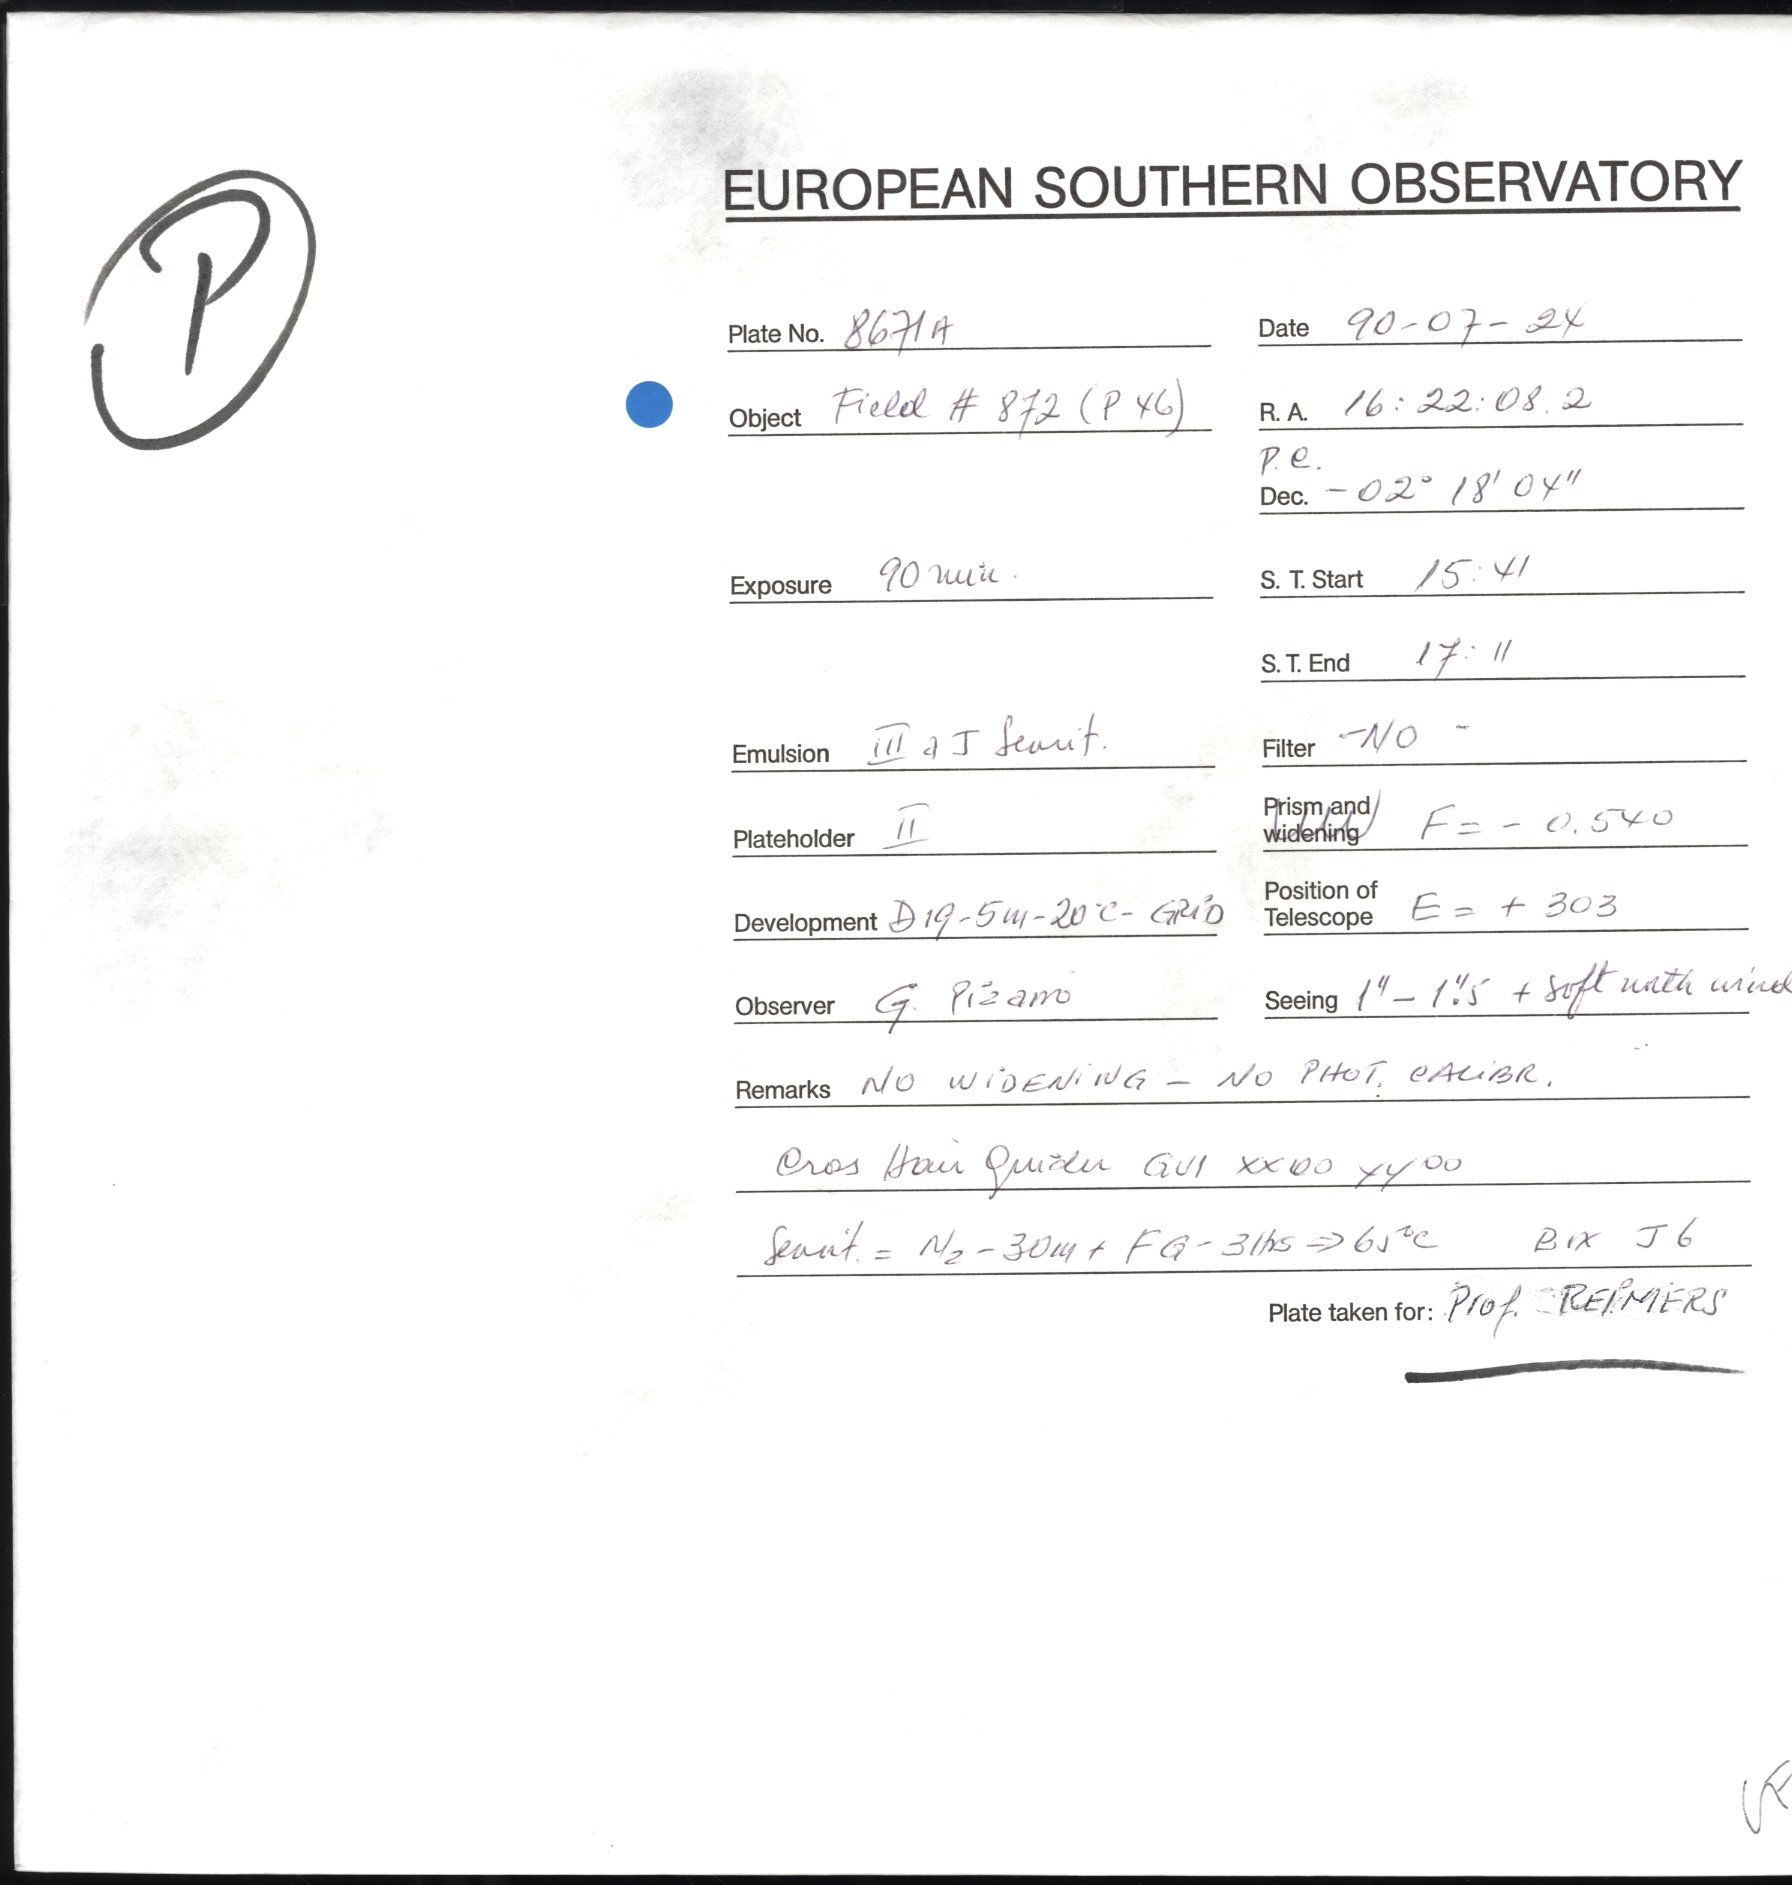 EUROPEAN SOUTHERN OBSERVATORY
P
Plate No. 8671A Date 90-07-24
Object Field # 872 (P 46) R. A. 16:22:08.2
P.C.
Dec. -02° 18' 04"
Exposure 90 min. S. T. Start 15:41
S. T. End 17:11
Emulsion III a J Sensit. Filter -NO -
Plateholder II Prism and widening F= - 0.540
Development D19-5m-20°C- GRID Position of Telescope E = + 303
Observer G. Pizarro Seeing 1" - 1".5 + soft north wind
Remarks NO WIDENING - NO PHOT. CALIBR.
Cros Hair Guider GU1 XX00 YY00
Sensit. = N2 - 30m + FG - 3hrs => 65°C Box J6
Plate taken for: Prof. REIMERS